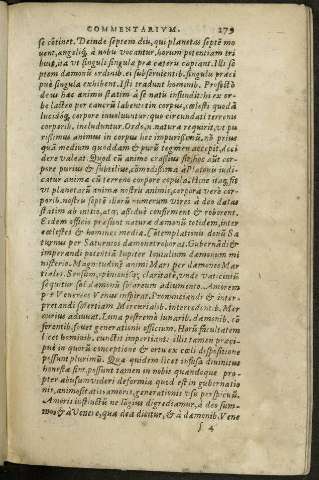 COMMENTARIVM. 279
se cõtinet. Deinde septem dĩj, qui planetas septẽ mo
uent, angeliq́ꝫ à nobis vocantur, horum potentiam tri
buis, ita vt singuli singula præ cæteris capiant. Illi se
ptem dæmonũ ordinib. ei subseruientib. singulis præci
puè singula exhibent. Isti tradunt hominib. Profectò
de us hæc animis statim à se natis insundit: hi ex or
be lacteo per cancrũ labentes in corpus, cœlesti quodã
lucidoq́ꝫ corpore inuoluuntur: quo circundati terrenis
corporib. includuntur. Ordo.n.naturæ requirit, vt pu
rissimus animus in corpus hoc impurissimũ, nõ prius
quã medium quoddam & purũ tegmen accepit, deci
dere valeat. Quod cũ animo crassius sit, hoc aũt cor-
pore purius & subtilius, cõmodissima à Platonis iudi-
catur animæ cũ terreno corpore copula. Hinc itaq́ꝫ sit
vt planetarũ animæ nostris animis, corpora verò cor-
poribus nostris septẽ illorũ munerum vires à deo datas
statim ab initio, atq́ꝫ assiduè confirment & roborent.
Eidem officio præsunt naturæ dæmonũ totidem, inter
cœlestes & homines media. Cõtemplationis donũ Sa
turnus per Saturnios dæmones roborat. Gubernãdi &
imperandi potentiã Iupiter Iouialium dæmonum mi
nisterio. Magnitudinẽ animi Mars per dæmones Mar
tiales. Sensuũ, opinionisq́ꝫ claritatẽ, vnde vaticiniũ
sequitur Sol dæmonũ solarium adiumento. Amorem
per Venereos Venus inspirat. Pronuntiandi & inter-
pretandi solertiam Mercurialib. intercedentib. Mer-
curius adiuuat. Luna postremò lunarib. dæmonib. cõ
ferentib. fouet generationis officium. Horũ facultatem
licet hominib. cunctis impartiant: illis tamen præci-
puè in quorũ conceptione & ortu ex cœli dispositione
possunt plurimũ. Quæ quidem licet infusa diuinitus
honesta sint, possunt tamen in nobis quandoque pro-
pter abusum videri deformia quod est in gubernatio
nis, animositatis, amoris, generationis vsu perspicuũ.
Amoris instinctũ ne lõgius digrediamur, à deo sum-
mo & à Venere, quæ dea dicitur, & à dæmonib. Vene
ſ 4